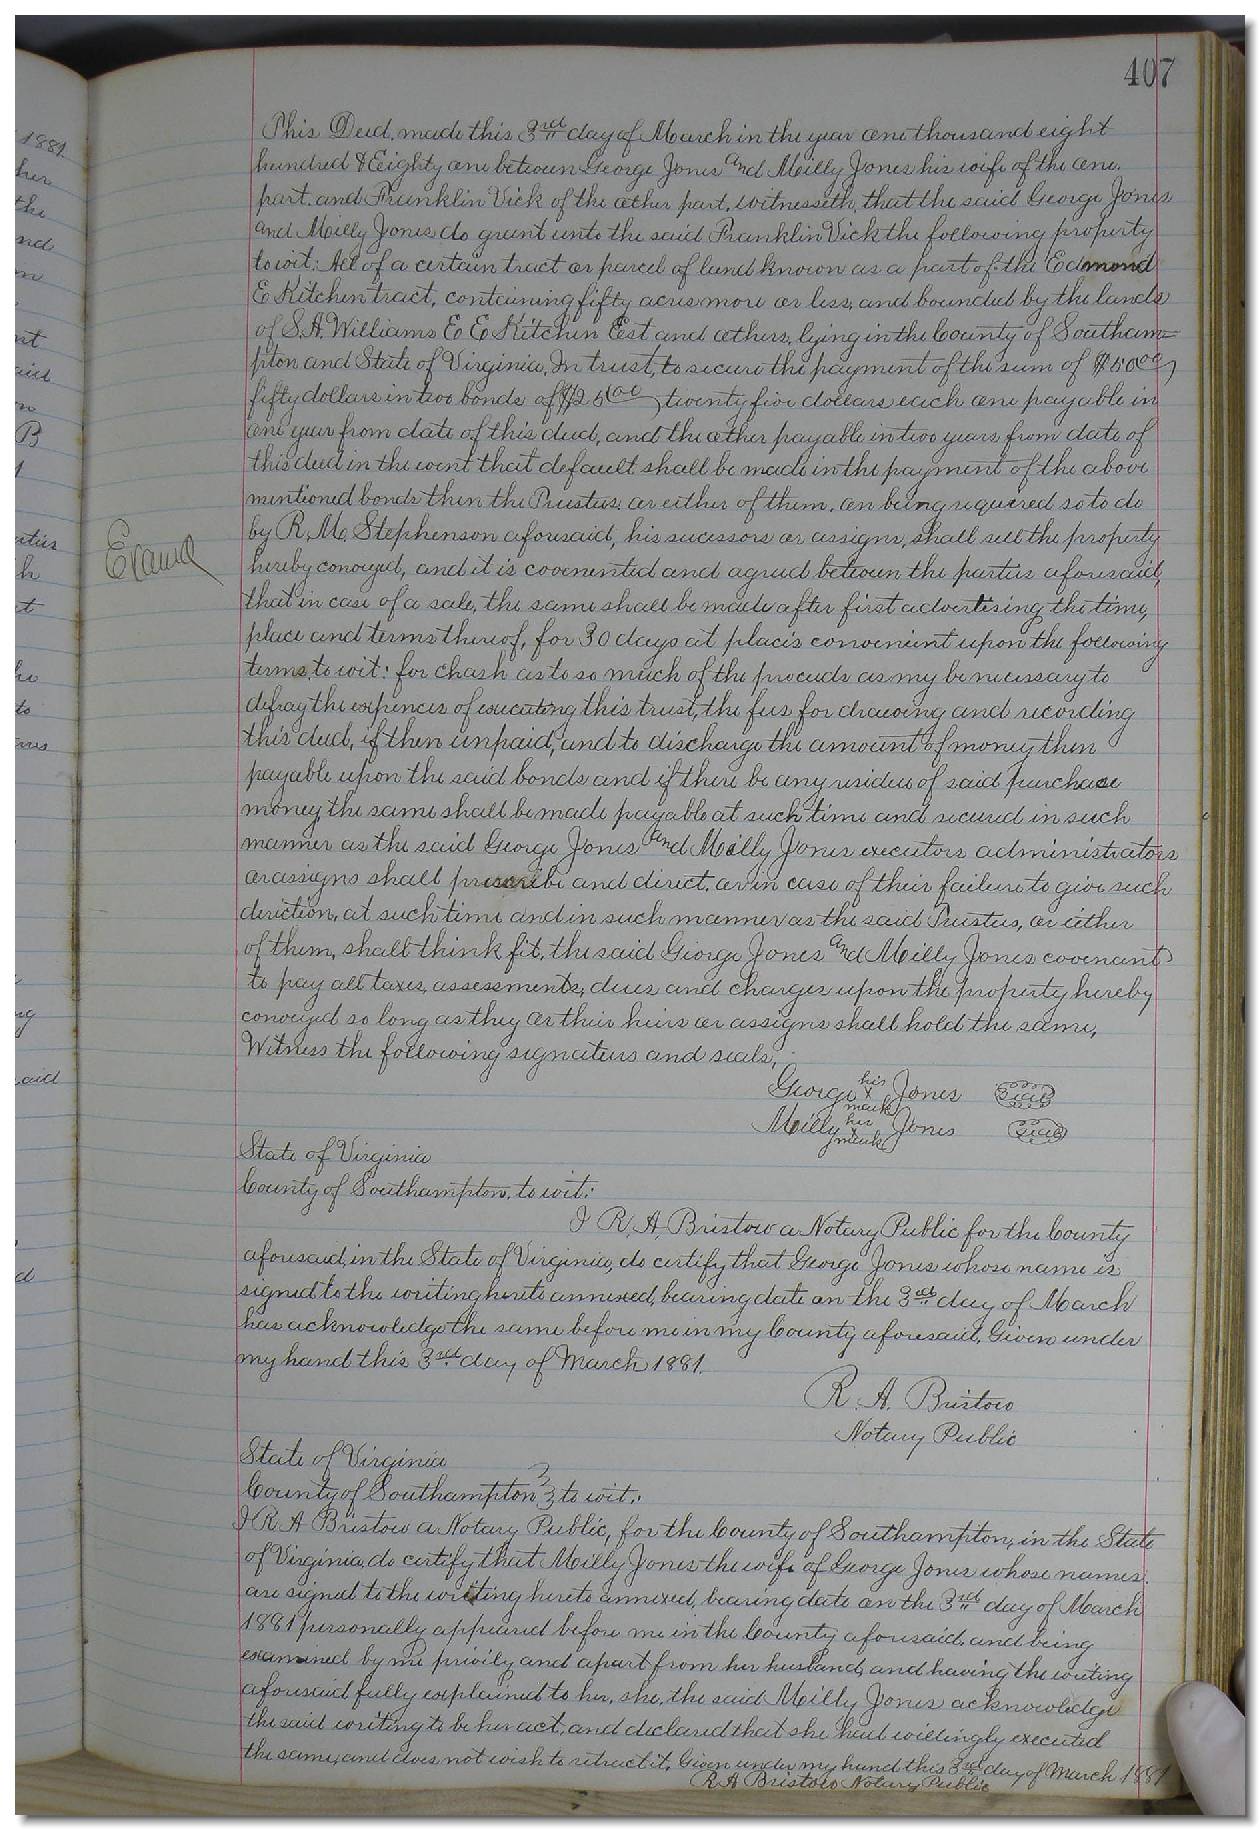 407
This Deed, made this 3rd day of March in the year one thousand eight
hundred & Eighty one between George Jones and Milly Jones his wife of the one
part and Franklin Vick of the other part, witnesseth, that the said George Jones
and Milly Jones do grant unto the said Franklin Vick the following property
to wit: All of a certain tract or parcel of land known as a part of the Edmond
E Kitchen tract, containing fifty acres more or less, and bounded by the lands
of S. A. Williams E E Kitchen Est and others, lying in the County of Southam=
pton and State of Virginia, In trust, to secure the payment of the sum of $50.00
fifty dollars in two bonds of $25.00 twenty five dollars each one payable in
one year from date of this deed, and the other payable in two years from date of
this deed in the event that default shall be made in the payment of the above
mentioned bonds then the Trustees or either of them, on being required so to do
by R. M. Stephenson aforesaid, his sucessors or assigns, shall sell the property
Examd
hereby conveyed, and it is covenented and agreed between the parties aforesaid,
that in case of a sale, the same shall be made after first advertising the time,
place and terms thereof, for 30 days at places convenient upon the following
terms, to wit: for chash as to so much of the proceeds as my be necessary to
defray the expences of executing this trust, the fees for drawing and recording
this deed, if then unpaid, and to discharge the amount of money then
payable upon the said bonds and if there be any residue of said purchase
money, the same shall be made payable at such time and secured in such
manner as the said George Jones and Milly Jones executors administrators
or assigns shall prescribe and direct, or in case of their failure to give such
direction, at such time and in such manner as the said Trustees, or either
of them, shall think fit, the said George Jones and Milly Jones covenant
to pay all taxes, assessments, dues and charges upon the property hereby
conveyed so long as they or their heirs or assigns shall hold the same,
Witness the following signatures and seals,
George his x mark Jones Seal
Milly her x mark Jones Seal
State of Virginia
County of Southampton, to wit:
I R. A. Bristow a Notary Public for the County
aforesaid, in the State of Virginia, do certify that George Jones whose name is
signed to the writing hereto annexed, bearing date on the 3rd day of March
has acknowledge the same before me in my County aforesaid, Given under
my hand this 3rd day of March 1881.
R. A. Bristow
Notary Public
State of Virginia
County of Southampton to wit:
I R A Bristow a Notary Public, for the County of Southampton, in the State
of Virginia, do certify that Milly Jones the wife of George Jones whose names
are signed to the writing hereto annexed, bearing date on the 3rd day of March
1881 personally appeared before me in the County aforesaid, and being
examined by me privily and apart from her husband, and having the writing
aforesaid fully explained to her, she, the said Milly Jones acknowledge
the said writing to be her act, and declared that she had willingly executed
the same, and does not wish to retract it, Given under my hand this 3rd day of March 1881
R A Bristow Notary Public